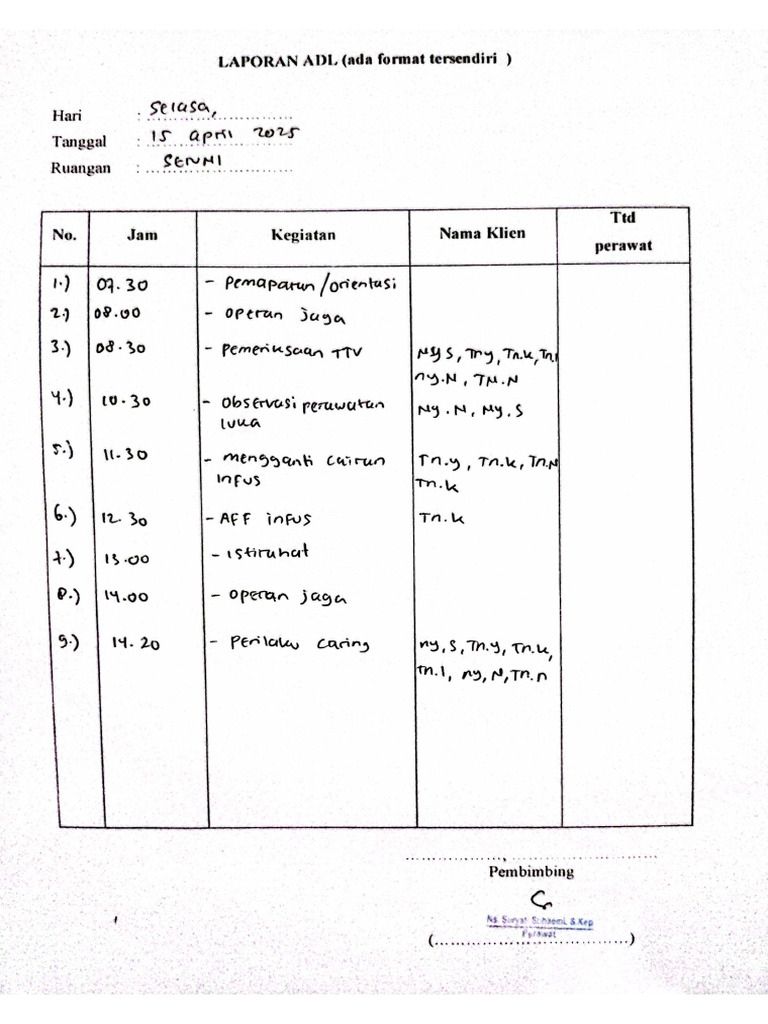 LAPORAN ADL (ada format tersendiri )
Hari : Selasa,
Tanggal : 15 april 2025
Ruangan :
No. Jam Kegiatan Nama Klien Ttd perawat
1.) 07.30 - Pemaparan/orientasi
2.) 08.00 - operan jaga
3.) 08.30 - Pemeriksaan TTV Ny S, Tn y, Tn.k, Tn.
ny.N, TN.N
4.) 10.30 - Observasi perawatan Ny.N, Ny.S
luka
5.) 11.30 - mengganti cairan Tn.y, Tn.k, Tn.N
infus Tn.k
6.) 12.30 - AFF infus Tn.k
7.) 13.00 - istirahat
8.) 14.00 - operan jaga
9.) 14.20 - Perilaku caring ny,S, Tn.y, Tn.k,
Tn.I, ny, N, Tn.n
Pembimbing
Ns. S.Kep
Perawat